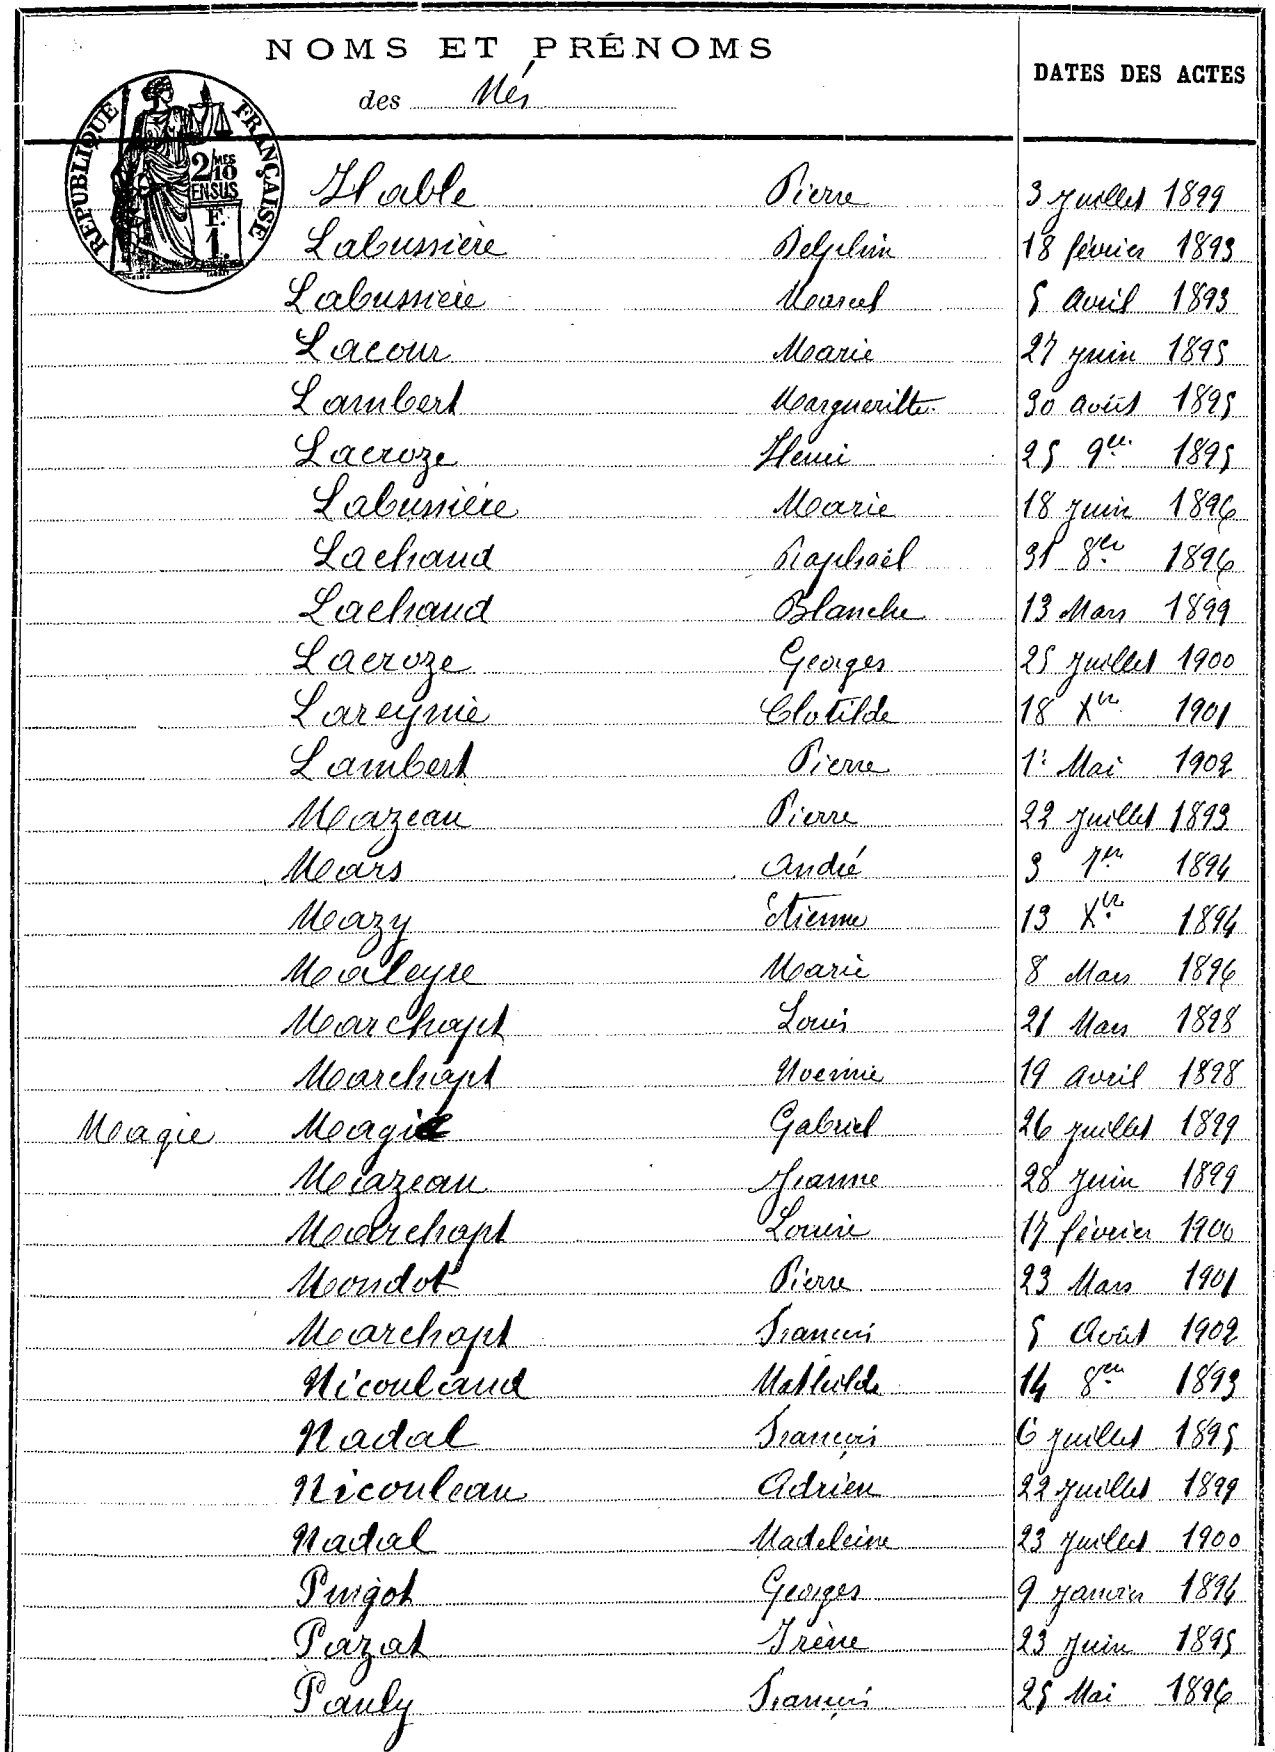 NOMS ET PRÉNOMS
DATES DES ACTES
des Nés
REPUBLIQUE FRANÇAISE
2/10 MES
EN SUS
F.
1.
Hable Pierre 3 Juillet 1899
Labussière Delphin 18 février 1893
Labussière Marcel 5 Avril 1893
Lacour Marie 27 Juin 1895
Lambert Margueritte 30 Août 1895
Lacroze Henri 25 9bre 1895
Labussière Marie 18 Juin 1896
Lachaud Raphaël 31 8bre 1896
Lachaud Blanche 13 Mars 1899
Lacroze Georges 25 Juillet 1900
Lareynie Clotilde 18 Xbre 1901
Lambert Pierre 1er Mai 1902
Mazeau Pierre 22 Juillet 1893
Mars André 3 7bre 1894
Mazy Etienne 13 Xbre 1894
Maleyre Marie 8 Mars 1896
Marchapt Louis 21 Mars 1898
Marchapt Noemie 19 Avril 1898
Magie Magie Gabriel 26 Juillet 1899
Mazeau Jeanne 28 Juin 1899
Marchapt Louise 17 février 1900
Mondot Pierre 23 Mars 1901
Marchapt Francois 5 Août 1902
Nicouleaud Mathilde 14 8bre 1893
Nadal François 6 Juillet 1895
Nicouleau Adrien 22 Juillet 1899
Nadal Madeleine 23 Juillet 1900
Puigot Georges 9 Janvier 1894
Pazat Irène 23 Juin 1895
Pauly Francois 25 Mai 1896